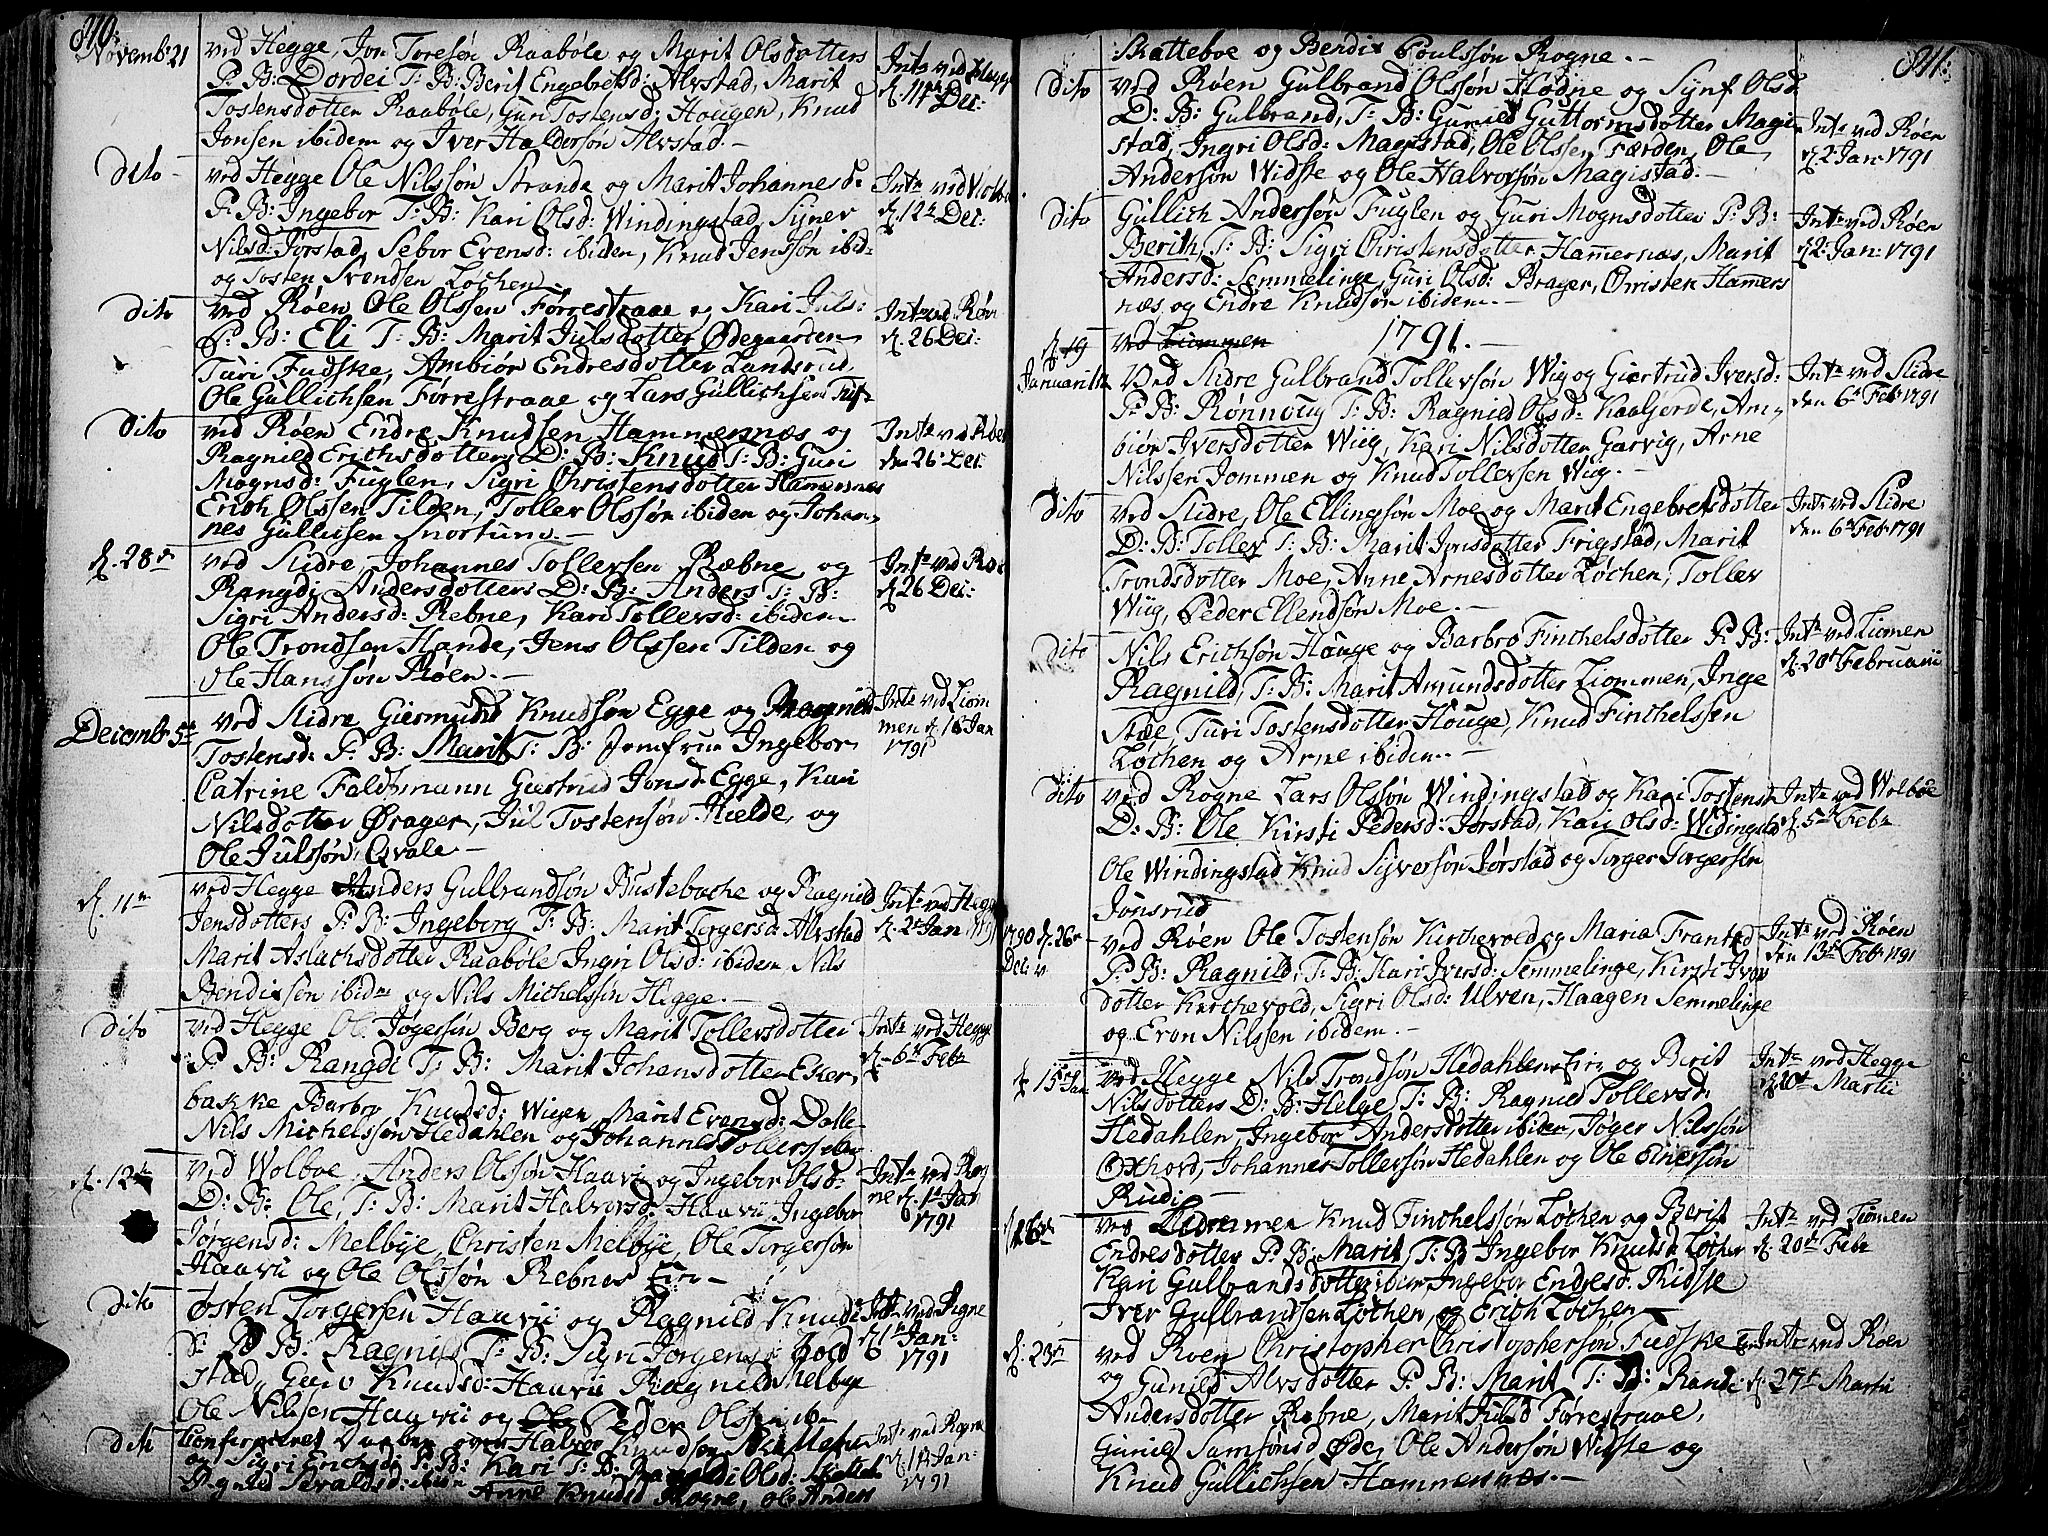 810:
Novemb: 21 ved Hegge, Jon Toresøn Raabøle og Marit Olsdotters
P: B: Dordei T: B: Berit Engebretsd: Alvstad, Marit
Tostensdotter Raabøle, Guri Tostensd: Hougen, Knud
Jonsen ibidem og Iver Haldorsøn Alvstad.-
Int: ved Hegge
d. 11te Dec:
Dito ved Hegge Ole Nilssøn Strande og Marit Johannesd:
P: B: Ingebor T: B: Kari Olsd: Windingstad, Signer
Nilsd: Jørstad, Sebor Evensd: ibidem, Knud Jenssøn ibid:
og Tosten Svendsen Løchen
Int: ved Wolbu
d. 12te Dec:
Dito ved Røen Ole Olssen Førrestraae og Kari Juls:
P: B: Eli T: B: Marit Julsdotter Ødegaarden
Turi Fudske, Ambiør Endresdotter Landsrud
Ole Gullichsen Førrestraae og Lars Gullichsen
Int: ved Røen
d. 26 Dec:
Dito ved Røen Endre Knudsen Hammernæs og
Ragnild Erichsdotters D: B: Knud T: B: Guri
Mognsd: Fuglen, Sigri Christensdotter Hamernes
Erich Olssen Tilden, Toller Olssøn ibidem og Johan-
nes Gullicsen Snortum.-
Int: ved Røen
den 26 Dec:
d. 28de ved Slidre, Johannes Tollersen Ræbne, og
Rangdi Andersdotters D: B: Anders T: B:
Sigri Andersd: Rebne, Kari Tollersd: ibidem
Ole Trondsen Hande, Jens Olssen Tilden og
Ole Hanssøn Røen.-
Int: ved Røen
d. 26 Dec:
Decemb: 5te ved Slidre Giermund Knudsøn Egge og Ragnild
Tostensd: P: B: Marit T: B: Jomfrue Ingebor
Catrine Faldtmann Giertrud Jonsd: Egge, Kari
Nilsdotter Ørager, Jul Tostensøn Hielde, og
Ole Julssøn Qvale.-
Int: ved Liom
men d. 16 Jan
1791
d. 11te ved Hegge Anders Gulbrandsøn Bustebacke og Ragnild
Jensdotters P: B: Ingeborg T: B: Marit Torgersd: Alvstad
Marit Aslachsdotter Raabøle Ingri Olsd: ibidem Nils
Bendixsøn ibidm og Nils Michelssøn Hegge.-
Int: ved Hegge
d. 2de Jan: 1791
Dito ved Hegge Ole Jøgersøn Berg og Marit Tollersdotter
P: B: Rangdi T: B: Marit Johansdotter Esker-
bakke Barbro Knudsd: Wigen Marit Evensd: Dalle
Nils Michelssøn Hedahlen og Johannes Tollersen ibm
Int: ved Hegge
d. 6te Febr
d. 12te ved Wolboe, Anders Olssøn Haavi og Ingebor Olsd:
D: B: Ole, T: B: Marit Halvorsd: Haavii Ingebor
Jørgensd: Melbye, Christen Melbye, Ole Torgersøn
Haavii og Ole Olssøn Rebnes Eie-
Int: ved Rog
ne d. 1te Jan
1791
Dito Tosten Torgersen Haavii og Ragnild Knuds
P: B: Ragnild T: B: Sigri Jørgensd:
stad, Guro Knudsd: Haavii Ragnild Melbye
Ole Nilssen Haavii og Peder Olsen ib-
Int: ved Rogne
d. 1te Jan:
1791
Dito Confirmeret Daaben over Halvor Knudsøn Skattebu
og Sigri Erichsd: P: B: Kari T: B: Rangdi Olsd: Skatteb
Ragnild Sevaldsd: ibidm Anne Knudsd Rogne, Ole Anders
Int: ved Rogne
d. 1te Jan:
1791
811:
Skatteboe og Bendix Poulssøn Rogne.-
Dito ved Røen Gulbrand Olssøn Hødne og Synf Olsd:
D: B: Gulbrand, T: B: Gunild Guttormsdotter Magi-
stad, Ingri Olsd: Magistad, Ole Olssen Færden, Ole
Andersøn Widste og Ole Halvorsøn Magistad.-
Int: ved Røen
d. 2 Jan: 1791
Dito Gullich Andersøn Fuglen og Guri Mognsdotter P: B:
Berith, T: B: Sigri Christensdotter Hamernæs, Marit
Andersd: Semmelinge, Guri Olsd: Brager, Christen Hamers
næs og Endre Knudsøn ibidem.-
Int: ved Røen
d. 2: Jan: 1791
ved Liommen 1791.-
d. 19
Januarii ved Slidre Gulbrand Tollersøn Wig og Giertrud Iversd:
P: B: Rønnoug T: B: Ragnild Olsd: Kaalgierde, Am-
biør Iversdotter Wiig, Kari Nilsdotter Garvig, Arne
Nilssen Jommen og Knud Tollersen Wiig.-
Int: ved Slidre
den 6te Febr 1791
Dito ved Slidre, Ole Ellingsøn Moe og Marit Engebretsdotter
D: B: Toller T: B: Marit Jonsdotter Frigstad, Marit
Trondsdotter Moe, Anne Arnesdotter Løchen, Toller
Wiig, Peder Ellendsøn Moe.-
Int: ved Slidre
den 6te Febr 1791
Dito Nils Erichsøn Houge og Barbro Finchelsdotter P: B:
Ragnild, T: B: Marit Amundsdotter Liommen, Inge
Støe, Turi Tostensdotter Houge, Knud Finchelssen
Løchen og Arne ibidem.-
Int: ved Liomen
d. 20de Februarii
Dito ved Rogne Lars Olssøn Windingstad og Kari Tostensd
D: B: Ole Kirsti Pedersd: Jørstad, Kari Olsd: Widingstd
Ole Windingstad Knud Syversøn Jørstad og Torger Torgersøn
Jønsrud
Int: ved Wolboe
d. 5te Febr
1790 d. 26de
Decbr ved Røen Ole Tostensøn Kirchevold og Maria Frantsd
P: B: Ragnild, T: B: Kari Iversd: Semmelinge, Kirsti Iver
dotter Kirchevold, Sigri Olsd: Ulven, Haagen Semmelinge
og Even Nilssen ibidem.-
Int: ved Røen
den 13de Febr 1791
d. 15de Jan ved Hegge Nils Trondsøn Hedahlen Eie og Berit
Nilsdotters D: B: Helge T: B: Ragnild Tollersd:
Hedahlen, Ingebor Andersdotter ibidem, Jøger Nilssøn
Oxhovd, Johannes Tollersøn Hedahlen og Ole Einersøn
Rudi.-
Int: ved Hegge
d. 20de Martii
d. 16de ved Liommen Knud Finchelssøn Løchen og Berit
Endresdotter P: B: Marit T: B: Ingebor Knudsd: Løchen
Kari Gulbrandsdotter ibm, Ingebor Endresd: Ridste
Iver Gulbrandsen Løchen, og Erich Løchen.-
Int: ved Liomen
d. 20de Febr
d. 23de ved Røen Christopher Christophersøn Fudske Eie
og Gunild Alvsdotter P: B: Marit T: B: Randi
Andersdotter Rebne, Marit Julsd Førrestraae,
Gunild Samsonsd Øde, Ole Andersøn Widste og
Knud Gullichsen Hammernæs.-
Int: ved Røen
d. 27de Martii